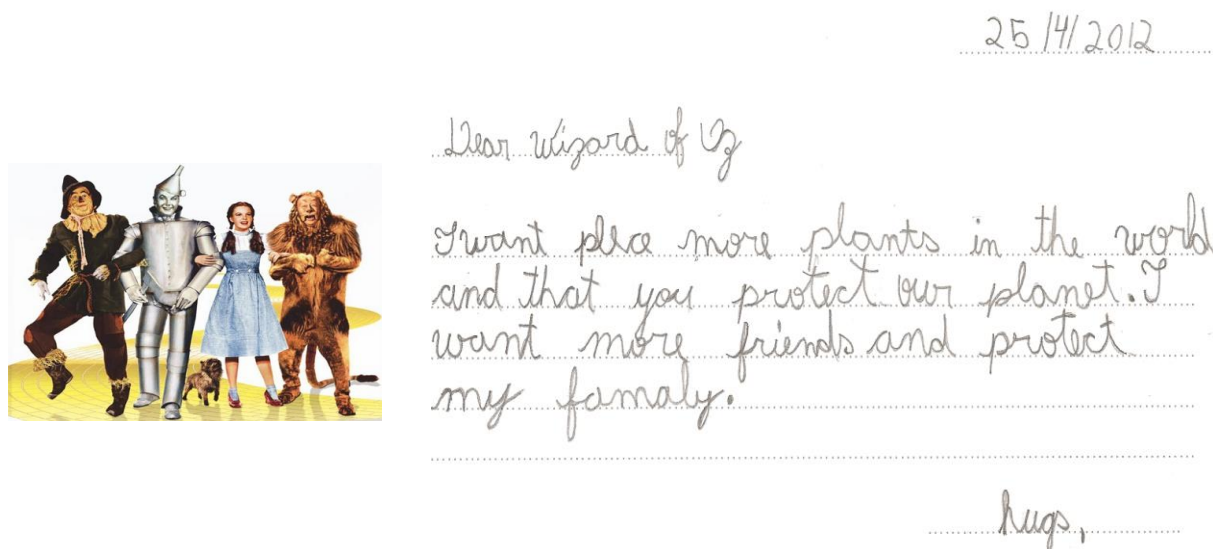 25/4/2012
Dear Wizard of Oz
I want plece more plants in the world
and that you protect our planet. I
want more friends and protect
my famaly.
hugs,